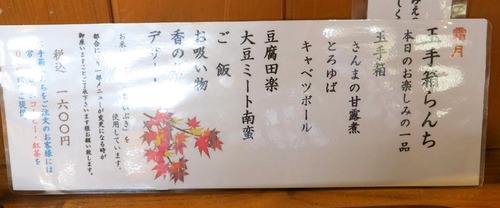 霜月
玉手箱らんち
本日のお楽しみの一品
玉手箱
さんまの甘露煮
とろゆば
キャベツボール
豆腐田楽
大豆ミート南蛮
ご飯
お吸い物
香の物
デザ
お米
使用しています。
都合により一部メニューが変更になる時が
御座いますことご了承下さいます様お願い致します。
税込 一六〇〇円
手箱
をご注文のお客様には
コーヒー・紅茶を
ご提供
みえこ
しく